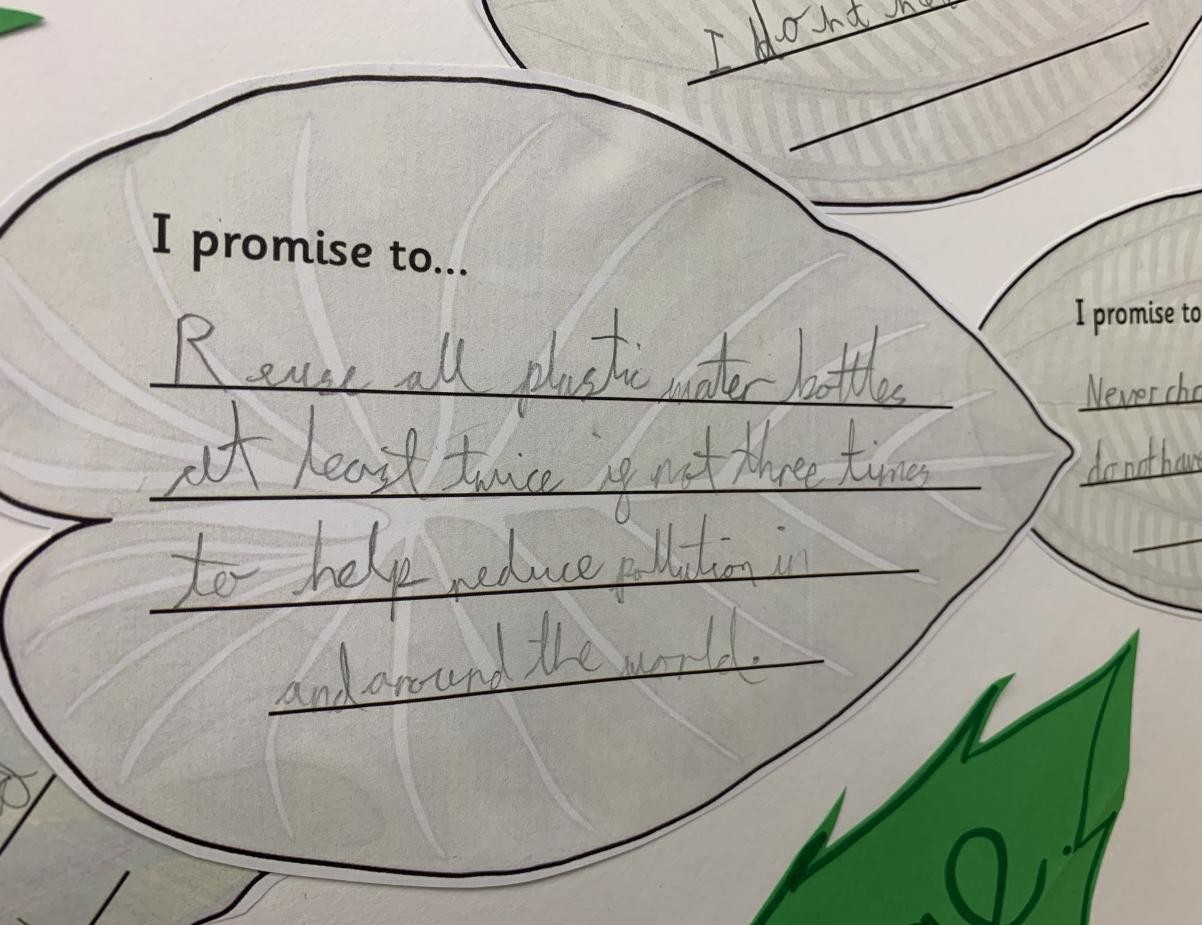 I dont
I promise to...
Reuse all plastic water bottles
at least twice if not three times
to help reduce pollution in
and around the world.
I promise to
Never
do not